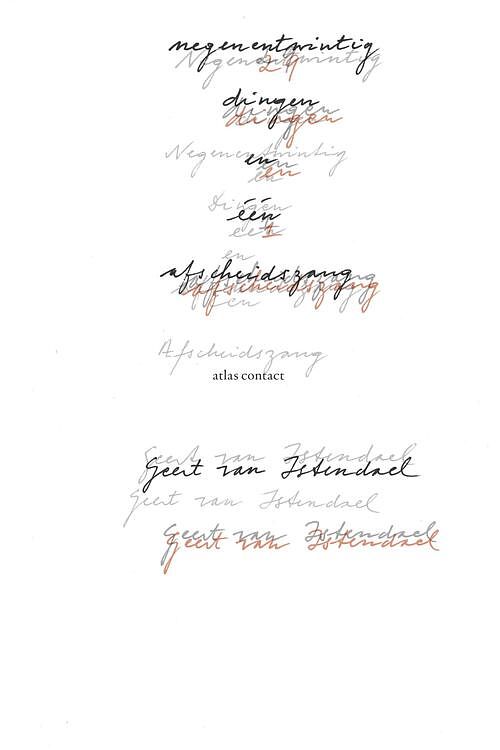 negenentwintig
Negenentwintig
29
dingen
dingen
dingen
Negenentwintig
en
en
en
Dingen
één
een
1
en
afscheidszang
afscheidszang
en
Afscheidszang
atlas contact
Geert van Istendael
Geert van Istendael
Geert van Istendael
Geert van Istendael
Geert van Istendael